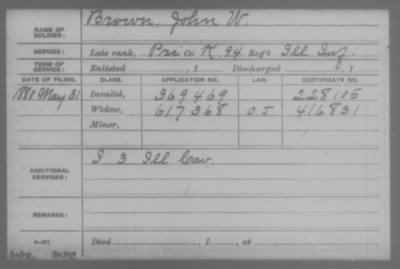 NAME OF SOLDIER: Brown, John W.
SERVICE: Late rank, Pri Co. K, 94 Reg't Ill Inf.
TERM OF SERVICE: Enlisted , 1 Discharged , 1
DATE OF FILING. CLASS. APPLICATION NO. LAW. CERTIFICATE NO.
1880 May 31 Invalid, 369469 228105
Widow, 617368 O J 416831
Minor,
ADDITIONAL SERVICES: I 3 Ill Cav.
REMARKS:
Died , 1 , at